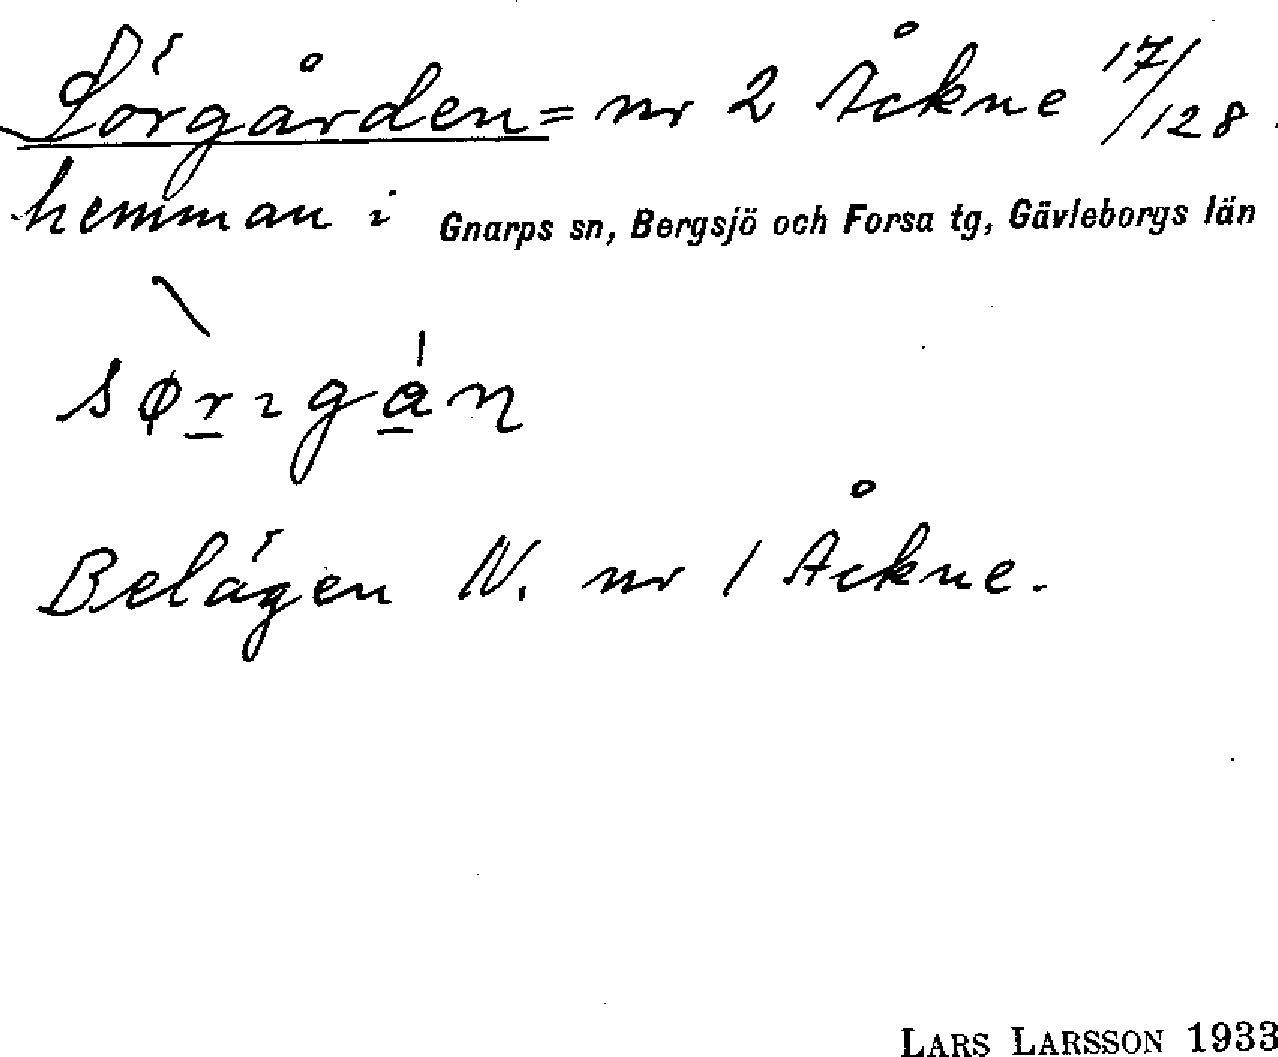 Sörgården = nr 2 Åckne 17/128.
hemman i Gnarps sn, Bergsjö och Forsa tg, Gävleborgs län
Belägen N. nr 1 Åckne.
LARS LARSSON 1933